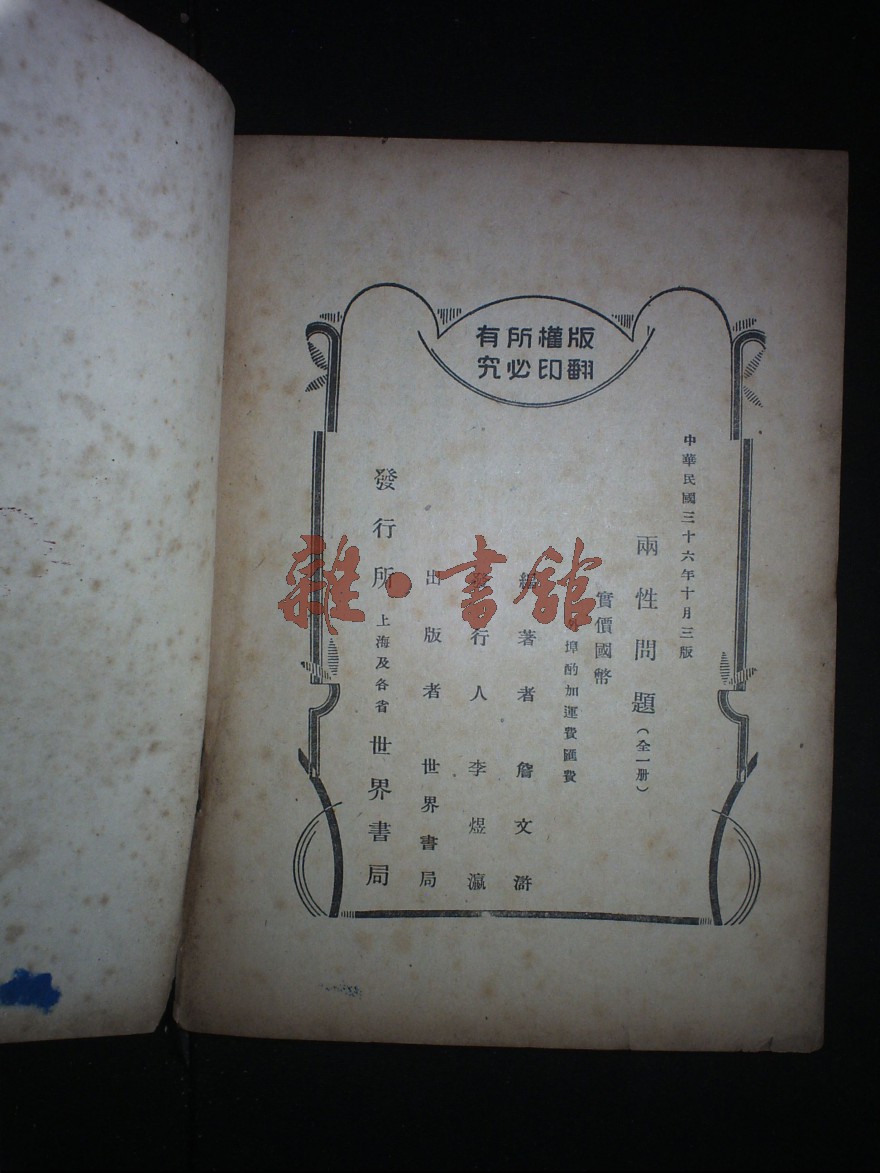 版權所有
翻印必究
中華民國三十六年十月三版
兩性問題（全一册）
實價國幣
埠酌加運費匯費
編著者 詹文滸
發行人 李煜瀛
出版者 世界書局
發行所 上海及各省 世界書局
雜·書館